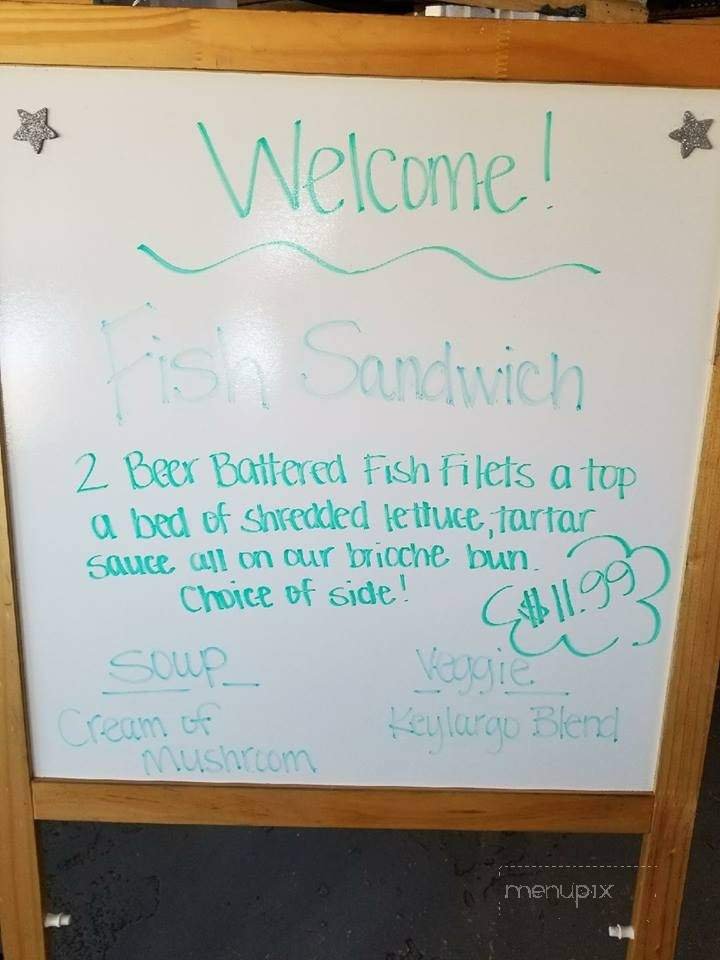 Welcome!
Fish Sandwich
2 Beer Battered Fish Filets a top
a bed of shredded lettuce, tartar
sauce all on our brioche bun.
Choice of side!
$11.99
Soup
Veggie
Cream of
Mushroom
Keylargo Blend
menupix